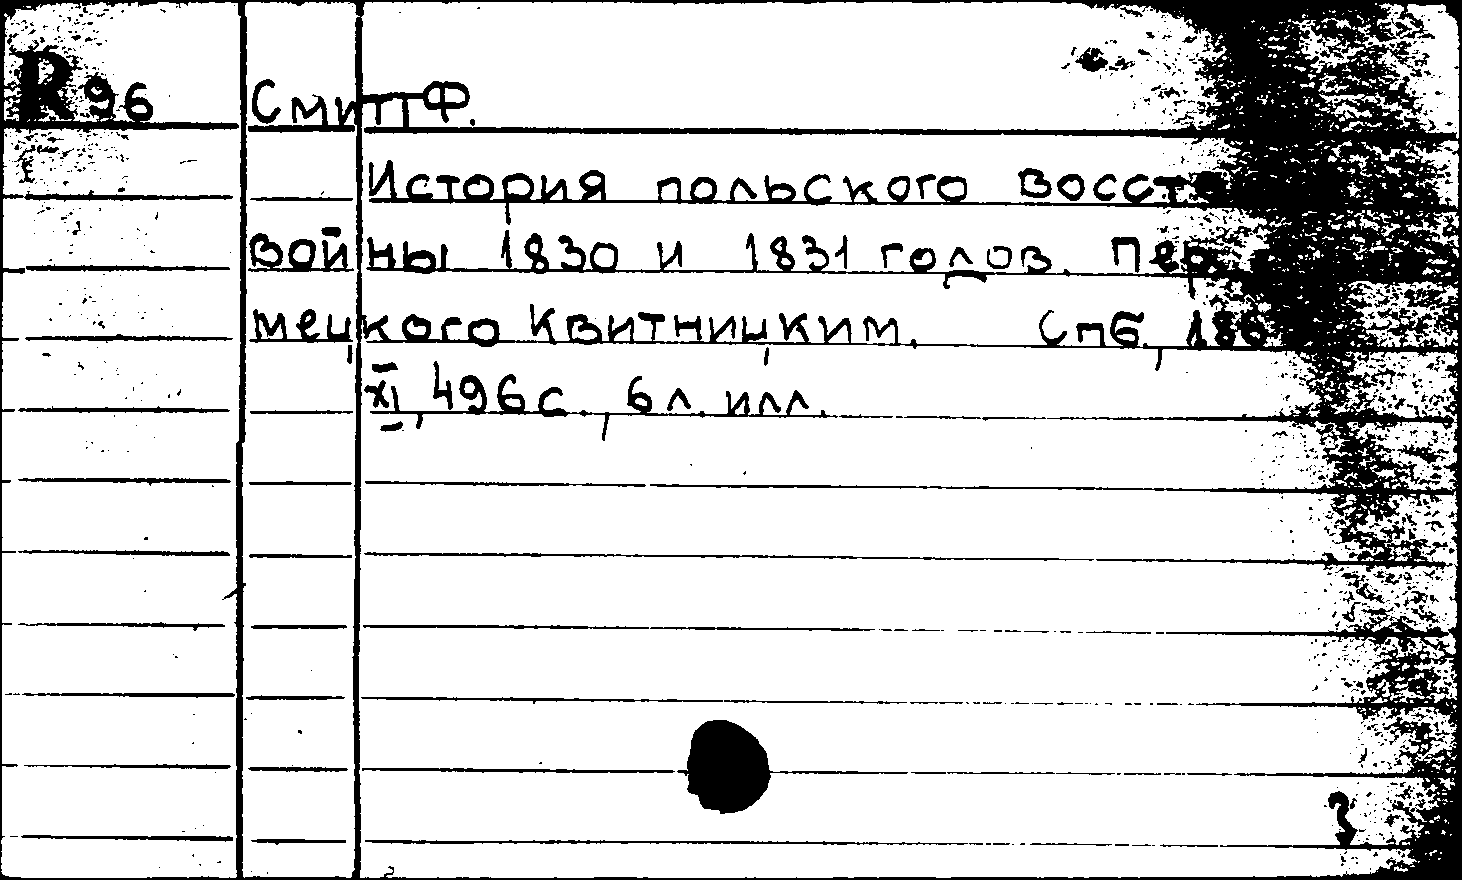 R 96 Смитт Ф.
История польского
войны 1830 и 1831 годов. Пер.
мецкого Квитницким. Спб.,
XI, 496 с., 6 л. илл.